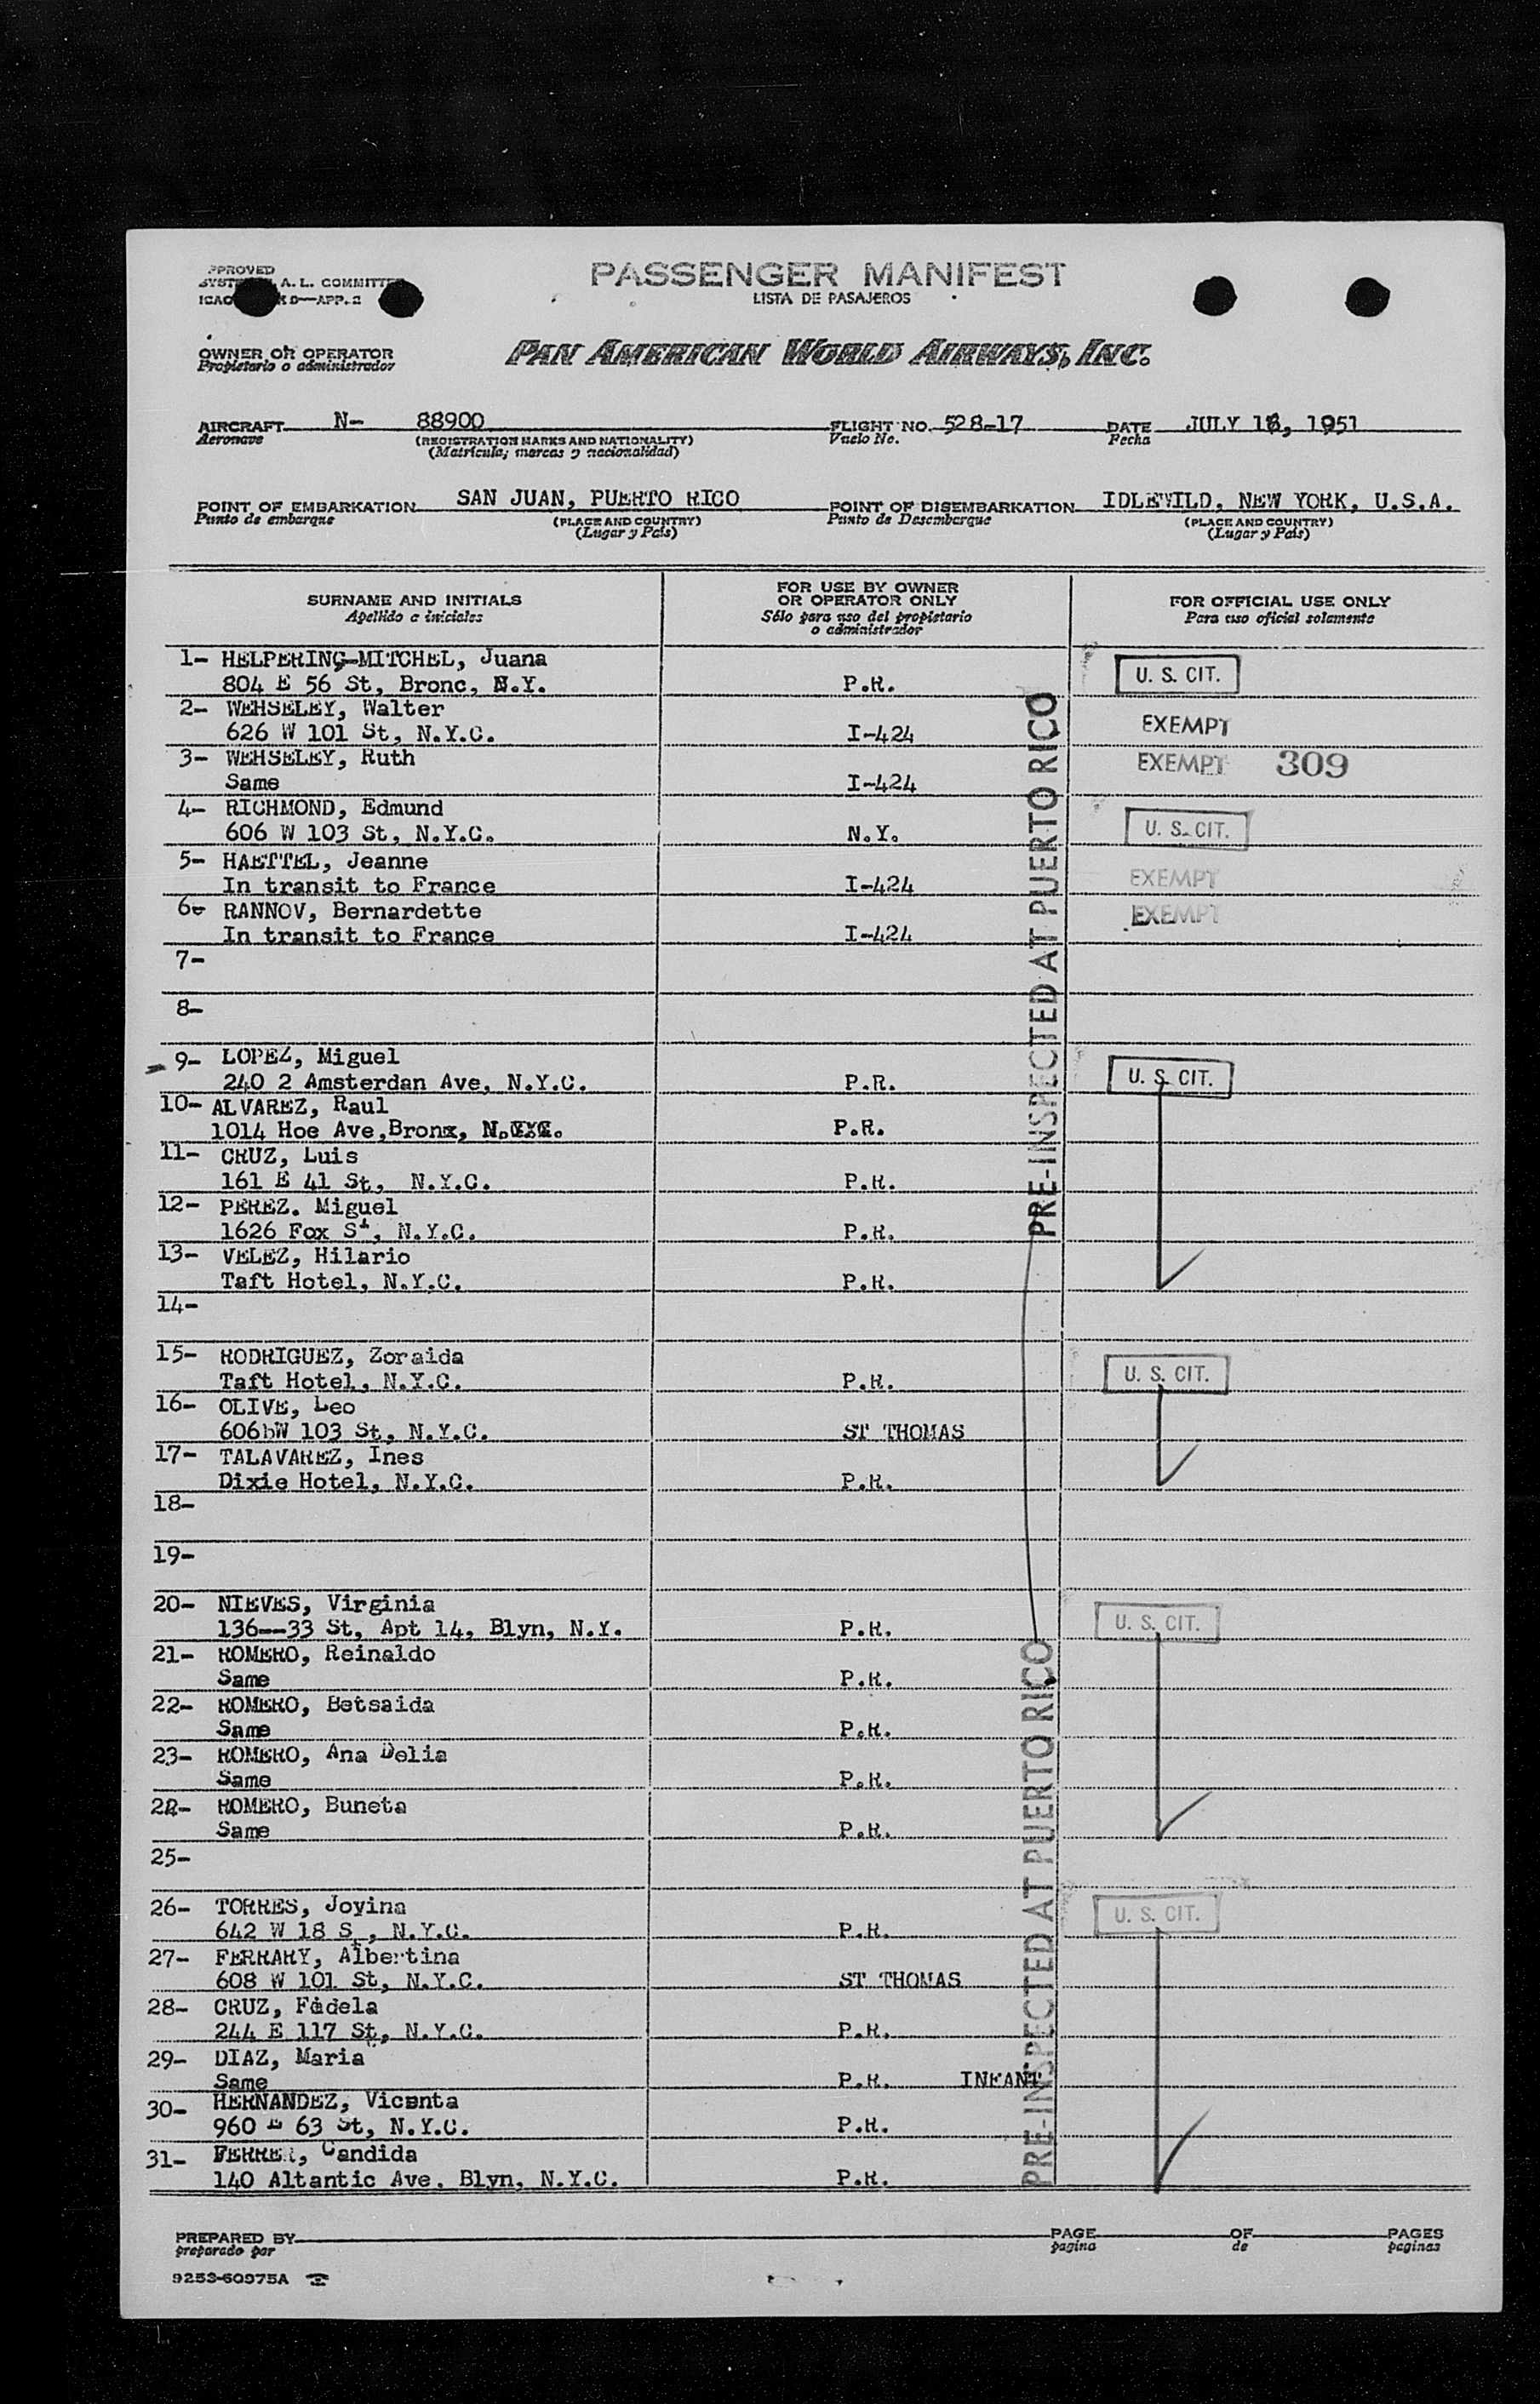 PASSENGER MANIFEST
LISTA DE PASAJEROS
A. L. COMMITTEE
APP. 2
OWNER OR OPERATOR
Propietario o administrador
PAN AMERICAN WORLD AIRWAYS, INC.
AIRCRAFT N- 88900 FLIGHT NO. 528-17 DATE JULY 1951
Aeronave (REGISTRATION MARKS AND NATIONALITY) Vuelo No. Fecha
(Matrícula; marcas y nacionalidad)
POINT OF EMBARKATION SAN JUAN, PUERTO RICO POINT OF DISEMBARKATION IDLEWILD, NEW YORK, U.S.A.
Punto de embarque (PLACE AND COUNTRY) Punto de Desembarque (PLACE AND COUNTRY)
(Lugar y País) (Lugar y País)
SURNAME AND INITIALS
Apellido e iniciales
FOR USE BY OWNER
OR OPERATOR ONLY
Sólo para uso del propietario
o administrador
FOR OFFICIAL USE ONLY
Para uso oficial solamente
1- HELPERING-MITCHEL, Juana
804 E 56 St, Bronc, N.Y. P.R. U. S. CIT.
2- WEHSELEY, Walter
626 W 101 St, N.Y.C. I-424 EXEMPT
3- WEHSELEY, Ruth
Same I-424 EXEMPT 309
4- RICHMOND, Edmund
606 W 103 St, N.Y.C. N.Y. U. S. CIT.
5- HAETTEL, Jeanne
In transit to France I-424 EXEMPT
6- RANNOV, Bernardette
In transit to France I-424 EXEMPT
7-
8-
9- LOPEZ, Miguel
240 2 Amsterdan Ave, N.Y.C. P.R. U. S. CIT.
10- ALVAREZ, Raul
1014 Hoe Ave,Bronx, P.R.
11- CRUZ, Luis
161 E 41 St, N.Y.C. P.R.
12- PEREZ. Miguel
1626 Fox St, N.Y.C. P.R.
13- VELEZ, Hilario
Taft Hotel, N.Y.C. P.R.
14-
15- RODRIGUEZ, Zoraida
Taft Hotel, N.Y.C. P.R. U. S. CIT.
16- OLIVE, Leo
606bW 103 St, N.Y.C. ST THOMAS
17- TALAVAREZ, Ines
Dixie Hotel, N.Y.C. P.R.
18-
19-
20- NIEVES, Virginia
136--33 St, Apt 14, Blyn, N.Y. P.R. U. S. CIT.
21- ROMERO, Reinaldo
Same P.R.
22- ROMERO, Betsaida
Same P.R.
23- ROMERO, Ana Delia
Same P.R.
ROMERO, Buneta
Same P.R.
25-
26- TORRES, Joyina
642 W 18 St, N.Y.C. P.R. U. S. CIT.
27- FERRARY, Albertina
608 W 101 St, N.Y.C. ST THOMAS
28- CRUZ, Fidela
244 E 117 St, N.Y.C. P.R.
29- DIAZ, Maria
Same P.R. INFANT
30- HERNANDEZ, Vicenta
960 E 63 St, N.Y.C. P.R.
31- FERRER, Candida
140 Altantic Ave, Blyn, N.Y.C. P.R.
PRE-INSPECTED AT PUERTO RICO
PRE-INSPECTED AT PUERTO RICO
PREPARED BY PAGE OF PAGES
preparado por pagina de paginas
9253-60975A